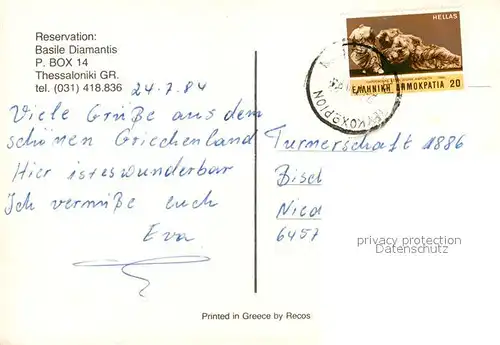 Reservation:
Basile Diamantis
P. BOX 14
Thessaloniki GR.
tel. (031) 418.836
24-7.84
Viele Grüße aus dem
schönen Griechenland
Hier ist es wunderbar
Ich vermiße euch
Eva
HELLAS
ΕΛΛΗΝΙΚΗ ΔΗΜΟΚΡΑΤΙΑ 20
Turnerschaft 1886
Bisel
Nied
6457
privacy protection
Datenschutz
Printed in Greece by Recos